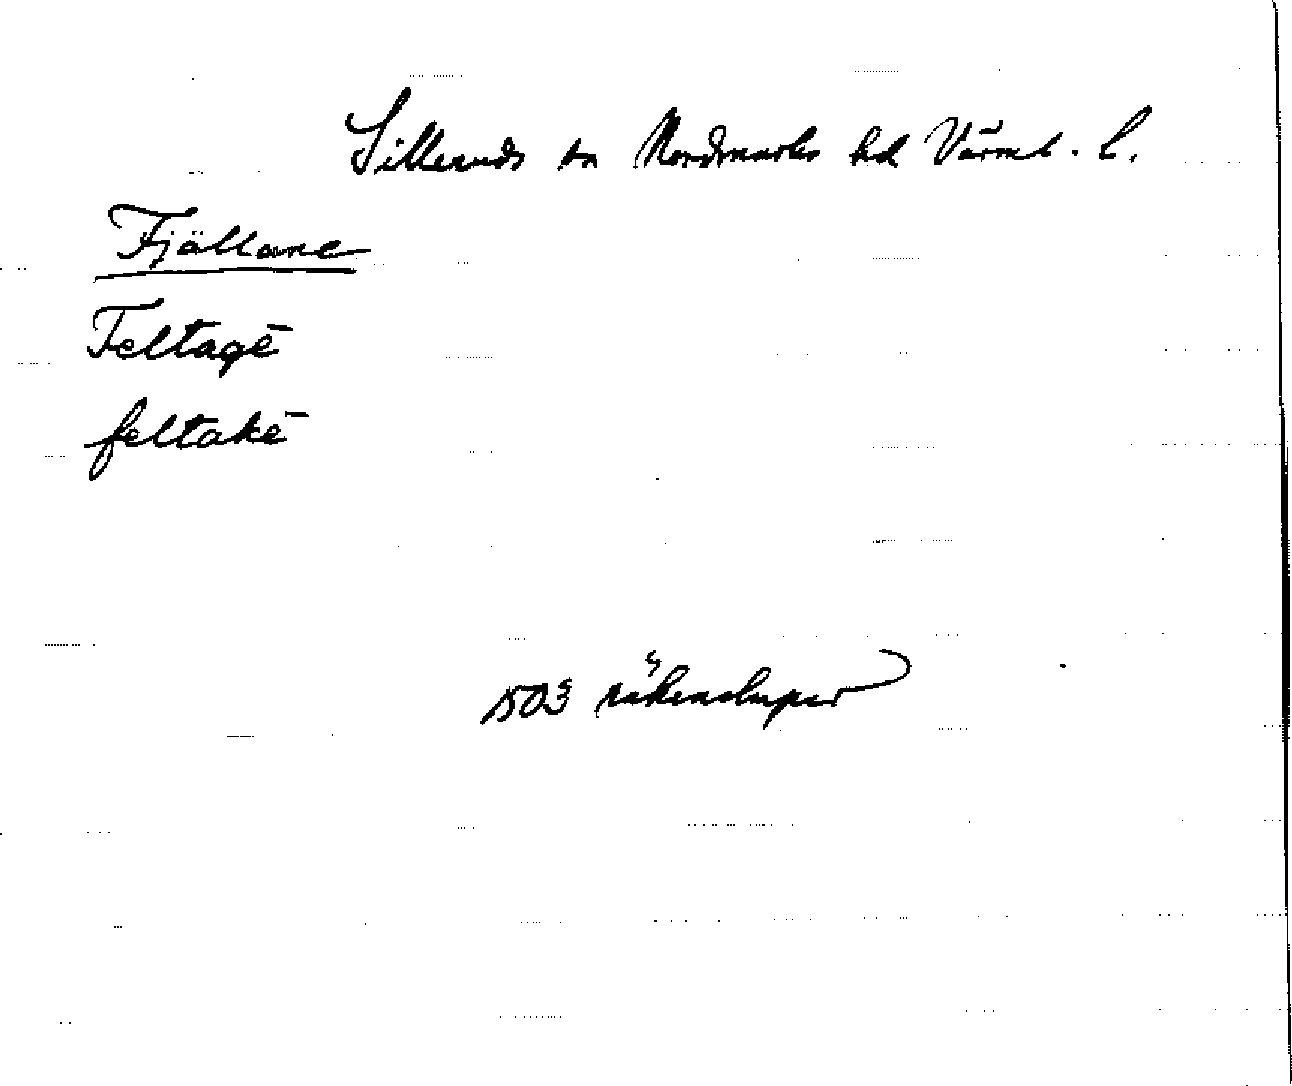 Silleruds sn Nordmarks hd Värml. l.
Fjällane
Feltagē
feltakē
1503 räkenskaper